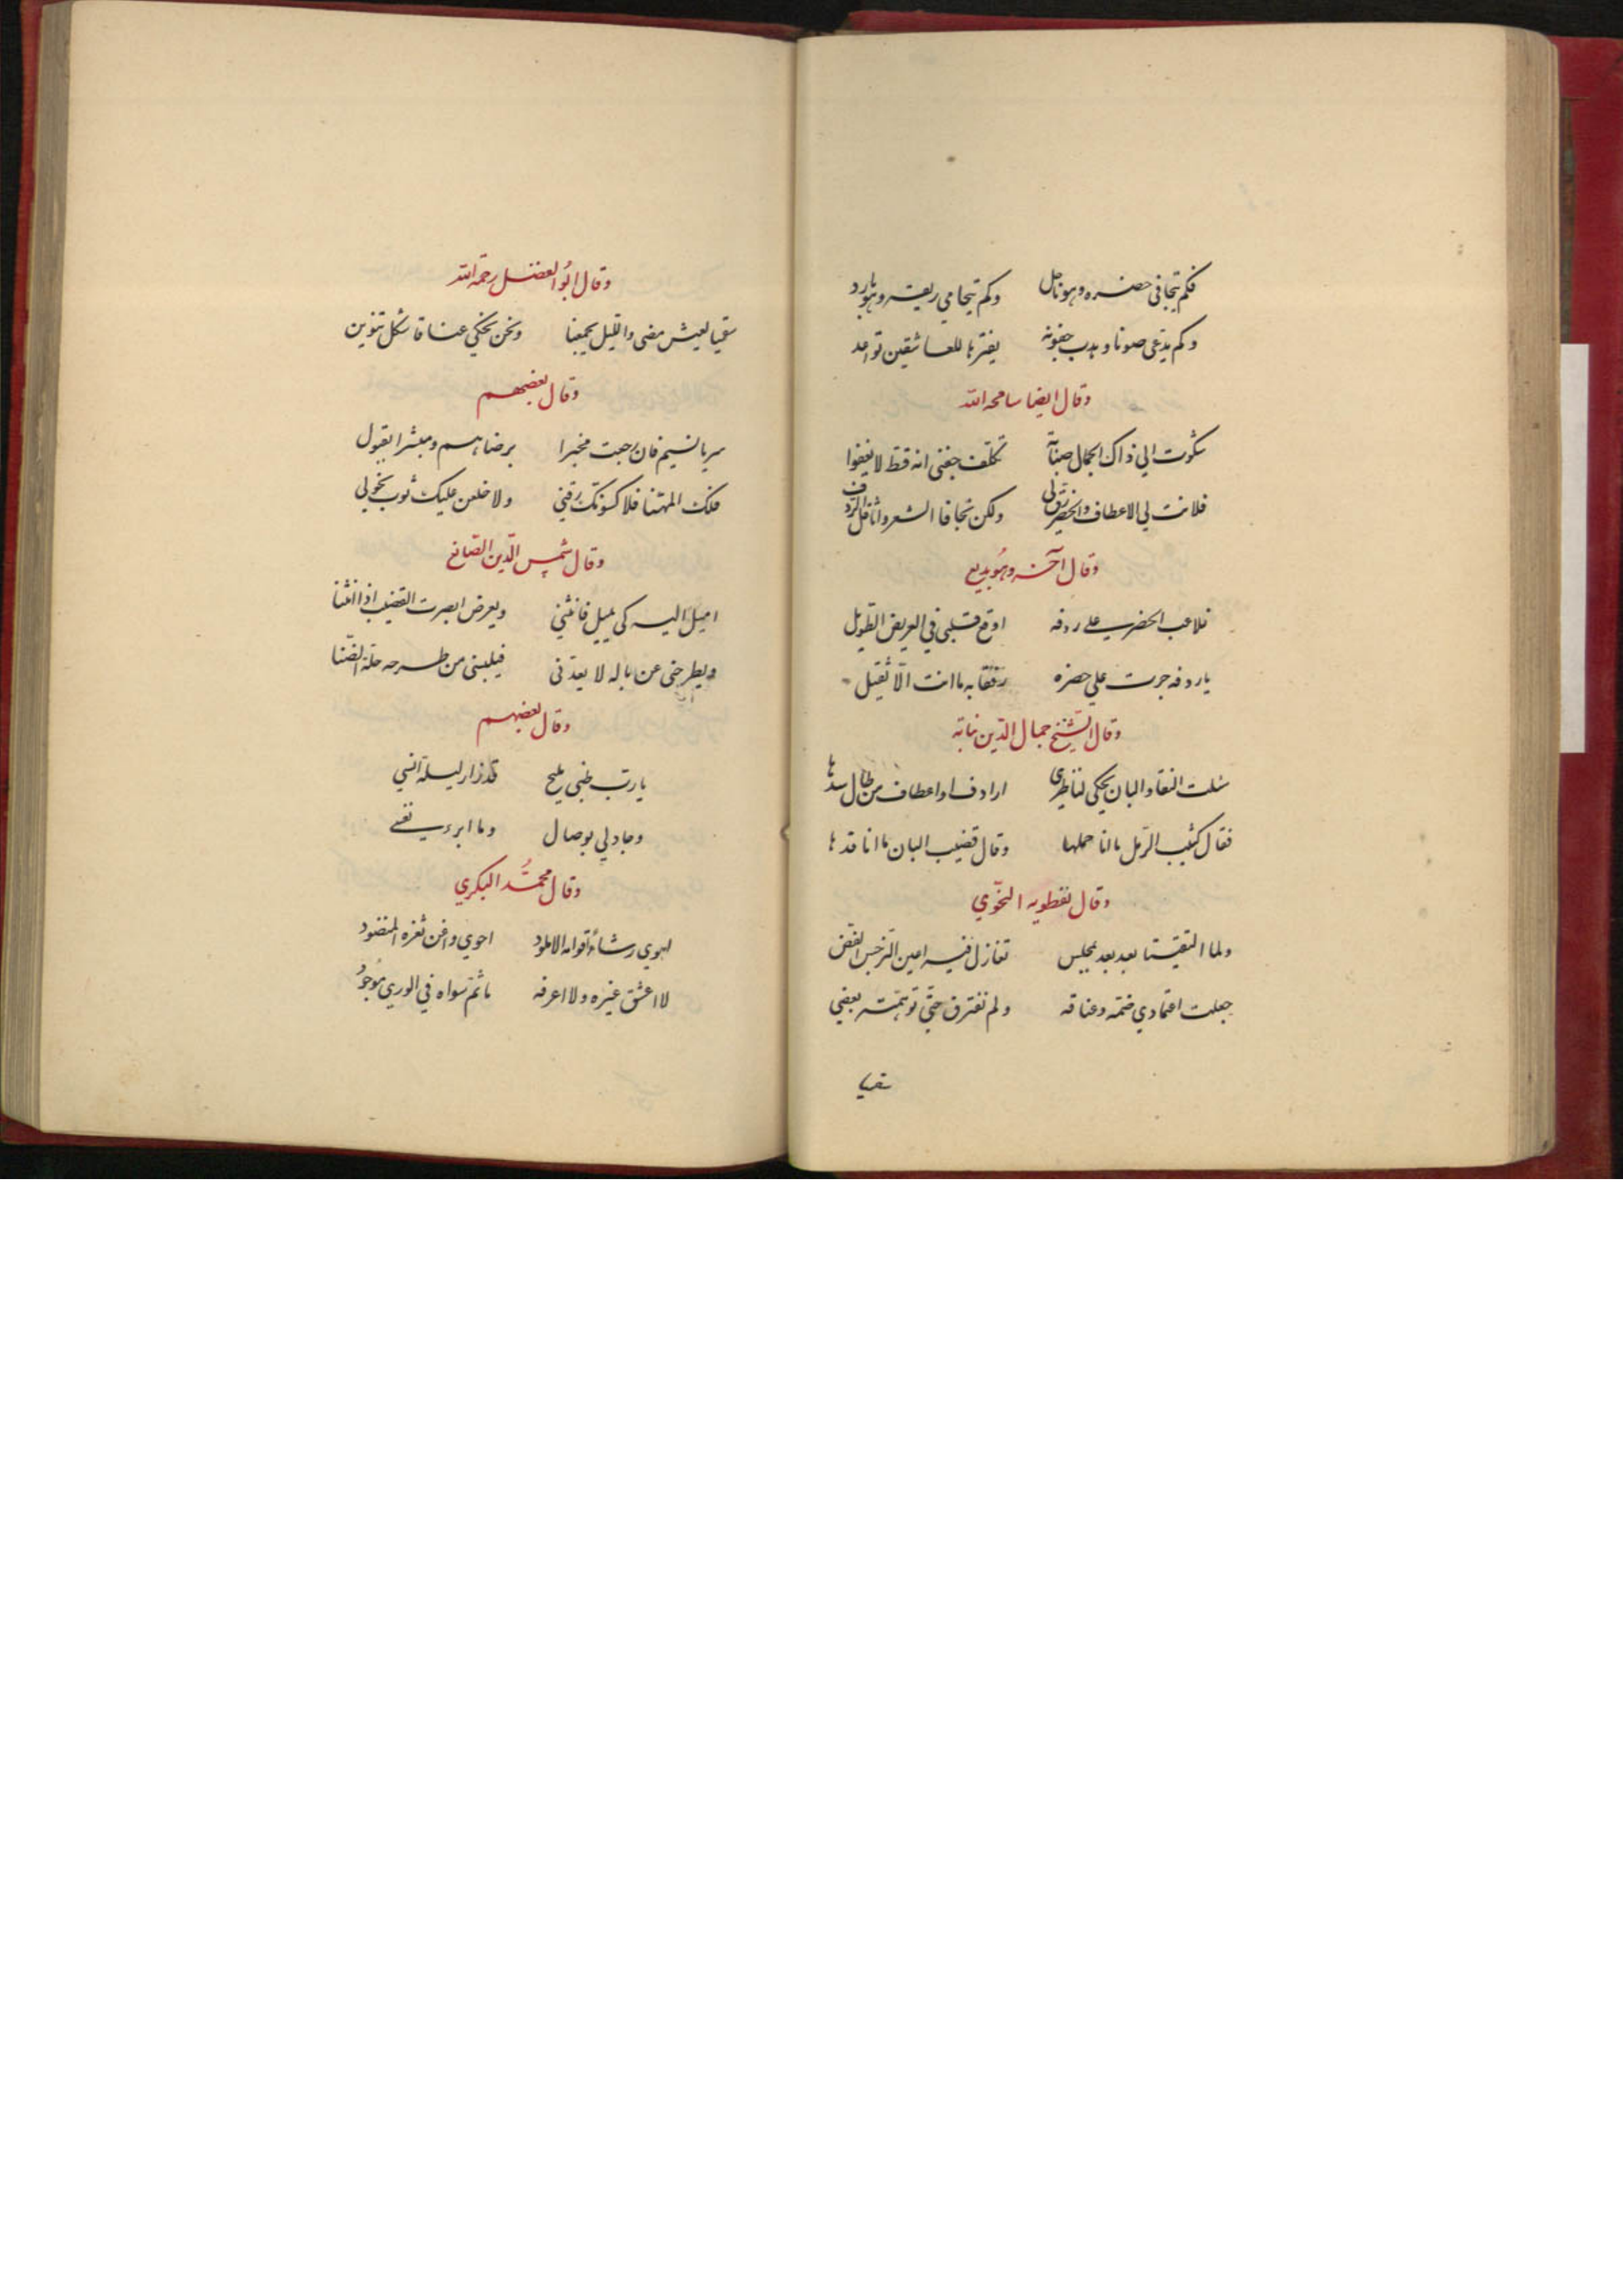 فكم يتجافى خصره وهو ناحل وكم يتحامى ريقه وهو بارد
وكم يدعى صونا وهدب جفونه بفترها للعاشقين تواعد
وقال ايضا سامحه الله
شكوت الي ذاك الجمال صبابة تكلف جفني انه قط لا يغفوا
فلانت لي الاعطاف والخصر رق لي ولكن تجافا الشعر واثاقل الردف
وقال آخر وهو بديع
تلاعب الخضر علي ردفه اوقع قلبي في العريض الطويل
يا ردفه جرت علي خصره رفقا به ما انت الا ثقيل
وقال الشيخ جمال الدين نباته
سئلت النقا والبان يحكي لناظري اردف او اعطاف من طال سدها
فقال كثيب الرمل ما انا حملها وقال قضيب البان ما انا قدها
وقال نفطويه النحوي
ولما التقينا بعد بعد بمجلس تغازل فيه اعين النرجس الغض
جعلت اعتمادي ضمه وعناقه ولم نفترق حتي توهمته بعضي
سقيا
وقال ابو الفضل رحمه الله
سقيا لعيش مضى والليل يجمعنا ونحن نحكي عناقا شكل تنوين
وقال بعضهم
سر يا نسيم فان رجعت مخبرا برضاهم ومبشرا بقبول
فلك الهنا فلا كسونك رقتي ولا خلعن عليك ثوب نحولي
وقال شمس الدين الصايغ
اميل اليه كي يميل فانثني ويعرض ابصرت القضيب اذا انثنا
ويطرحني عن باله لا يعدني فيلبسني من طرحه حلة الضنا
وقال بعضهم
يا رب ظبي مليح قد زار ليلة انسي
وجاد لي بوصال وما ابرء نفسي
وقال محمد البكري
اهوي رشاء قوامه الاملود احوي وافن ثغره المنضود
لا اعشق غيره ولا اعرفه ما ثم سواه في الوري موجود